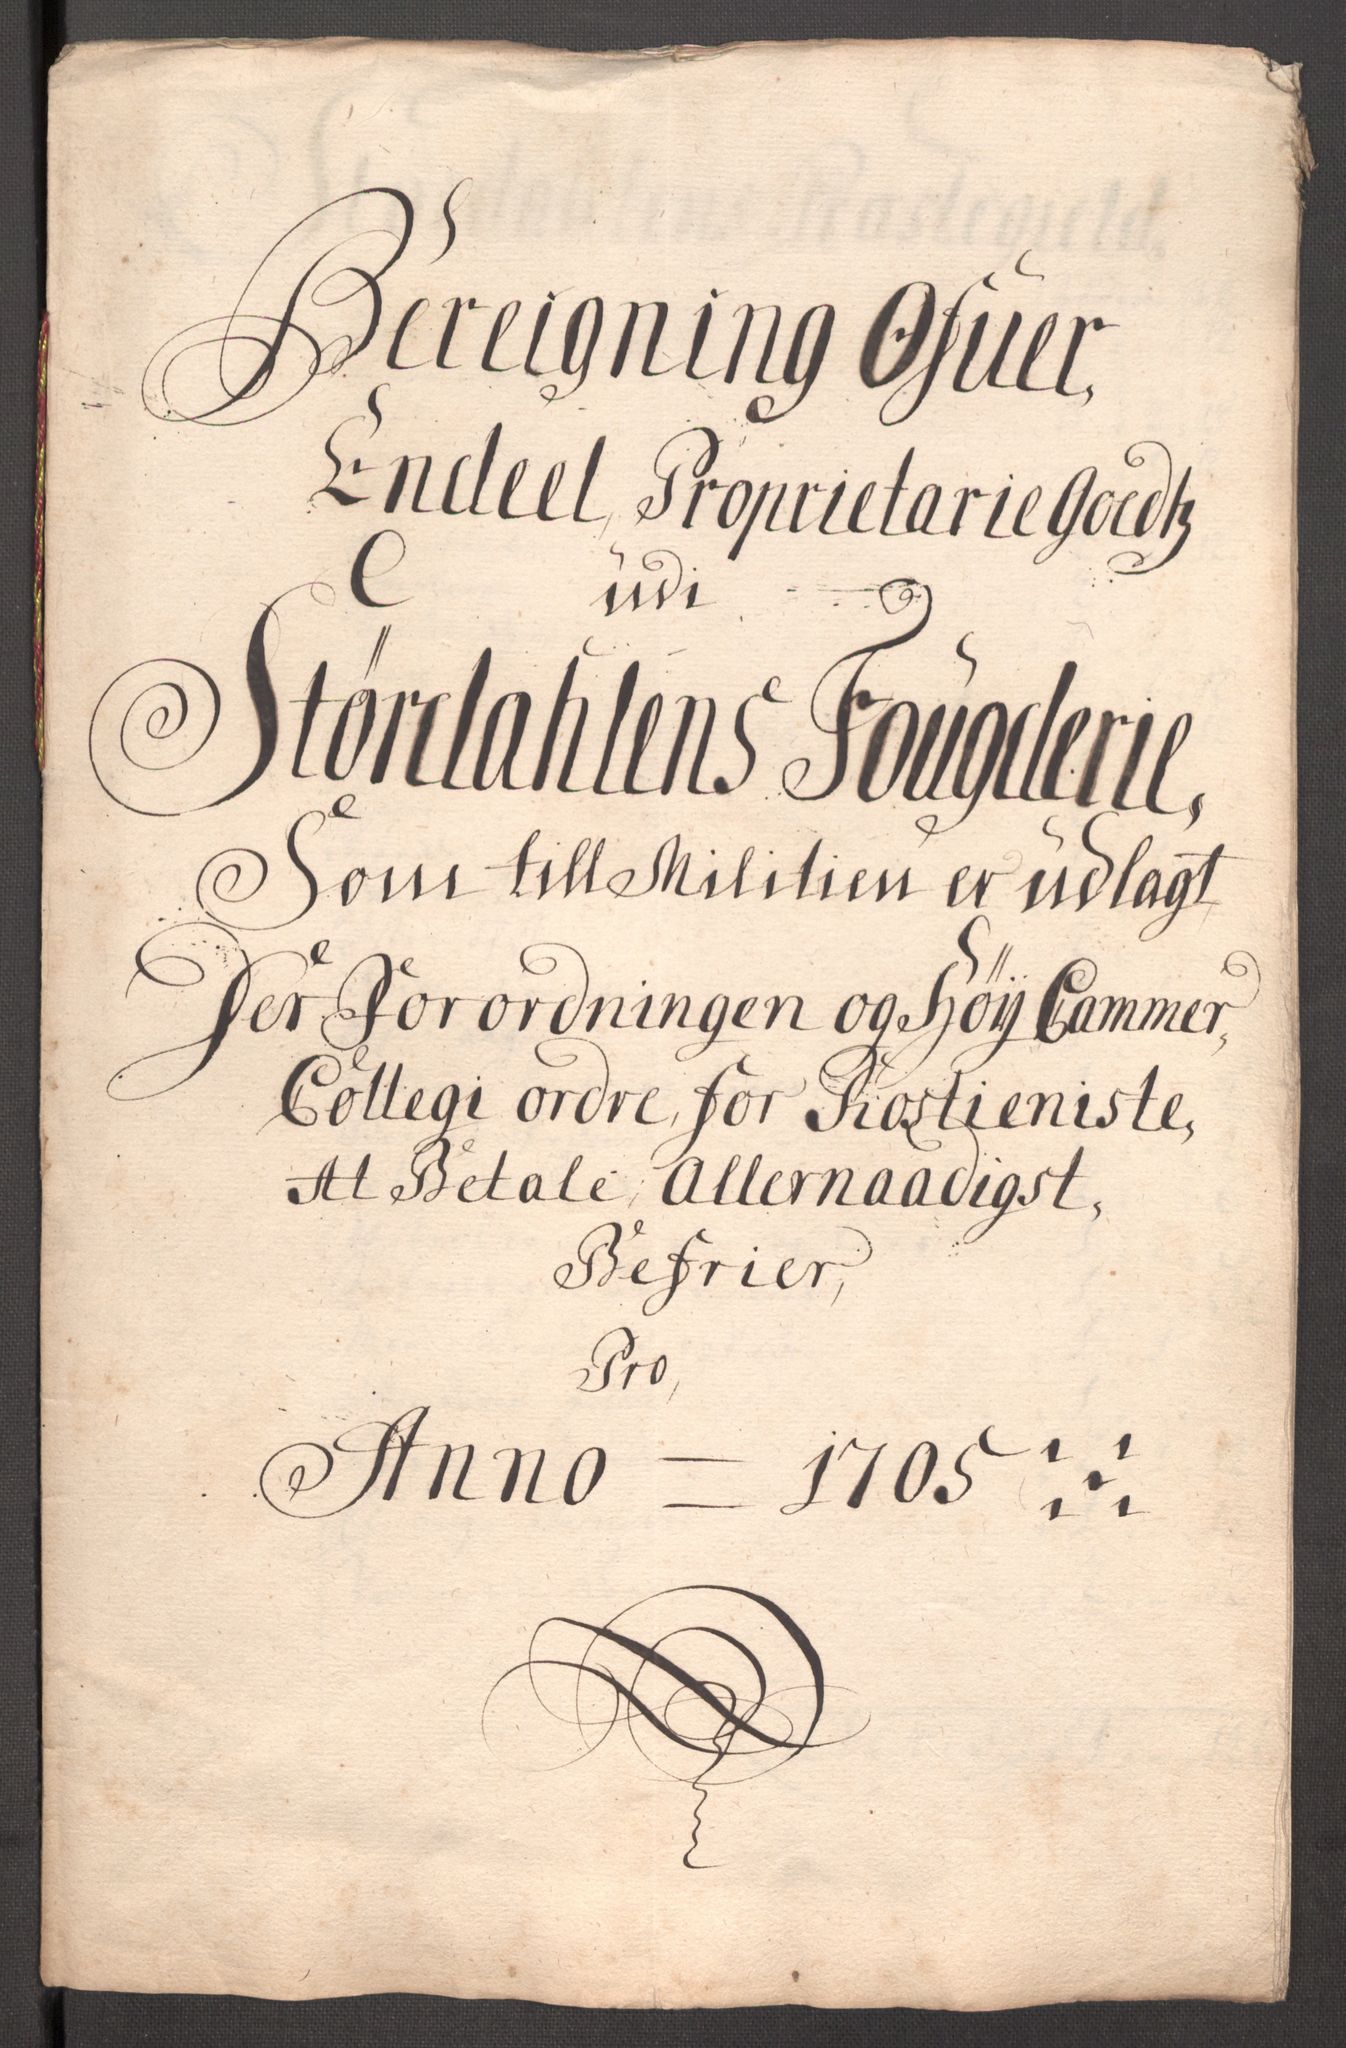 Bereigning Ofuer,
Endeel Proprietarie Goedtz
udi
Stördahlens Fougderie,
Som till Militien er udlagt
Der Forordningen og Höÿ Cammer,
Collegi ordre, for Rostieniste,
At Betale, Allernaadigst,
Befrier,
Pro,
Anno = 1705